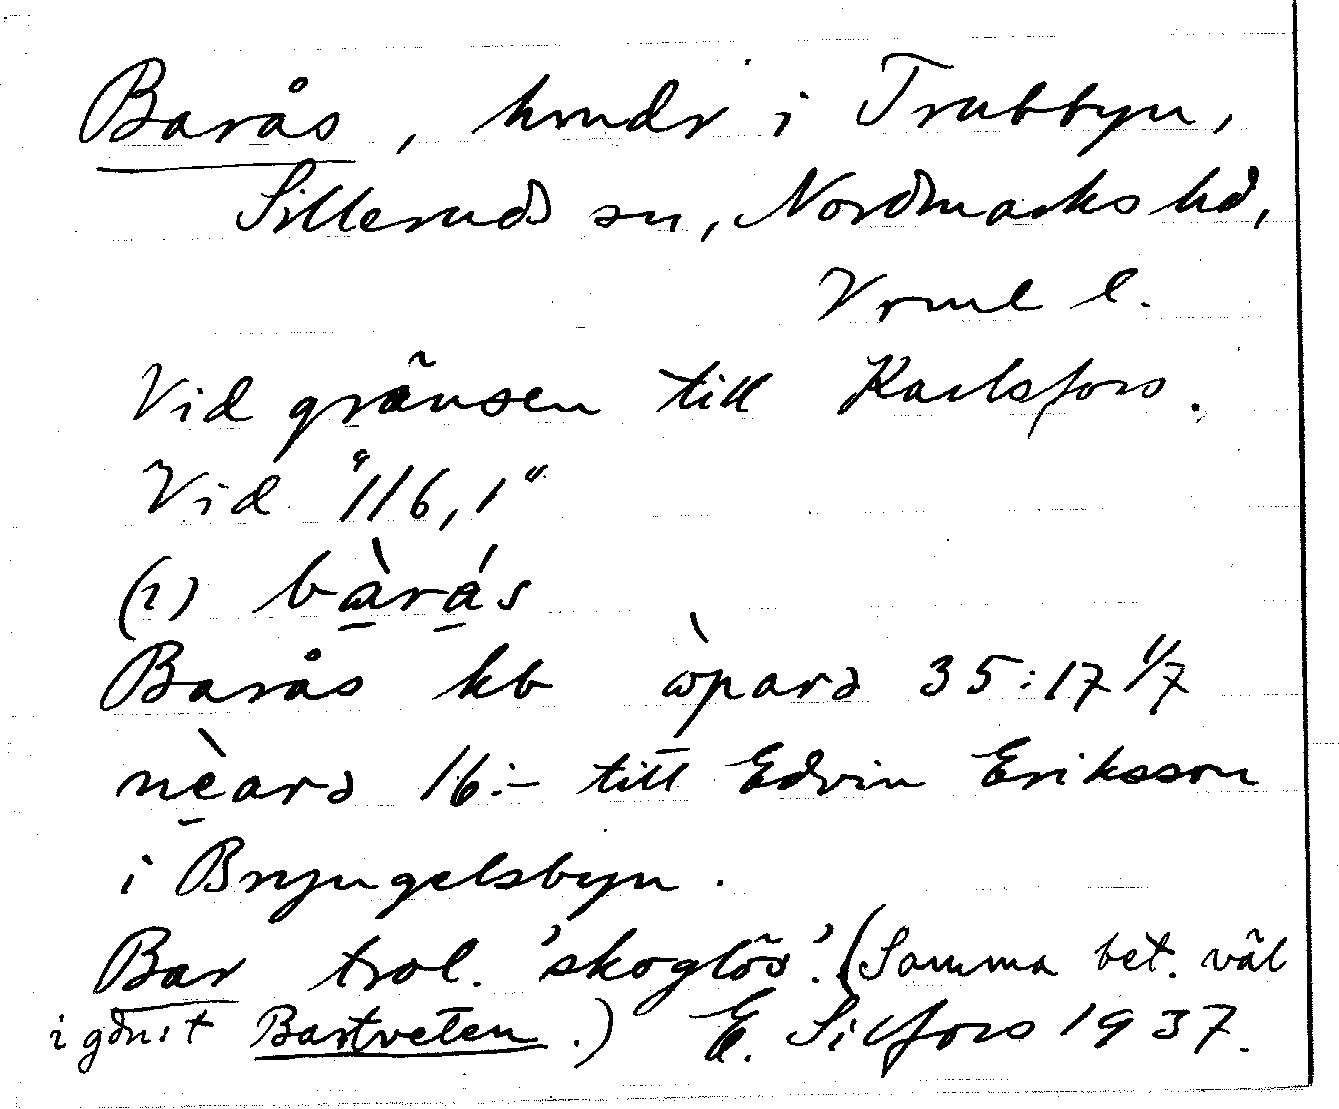 Barås, hmdr i Trubbyn,
Silleruds sn, Nordmarks hd,
Vrml l.
Vid gränsen till Karlsfors.
Vid "116,1"
(1) bàrás
Barås kb òpara 35:17 1/7
nèara 16:- till Edvin Eriksson
i Bryngelsbyn.
Bar trol. 'skoglös'. (Samma bet. väl
i gdn:t Bartveten.) E. Silfors 1937.